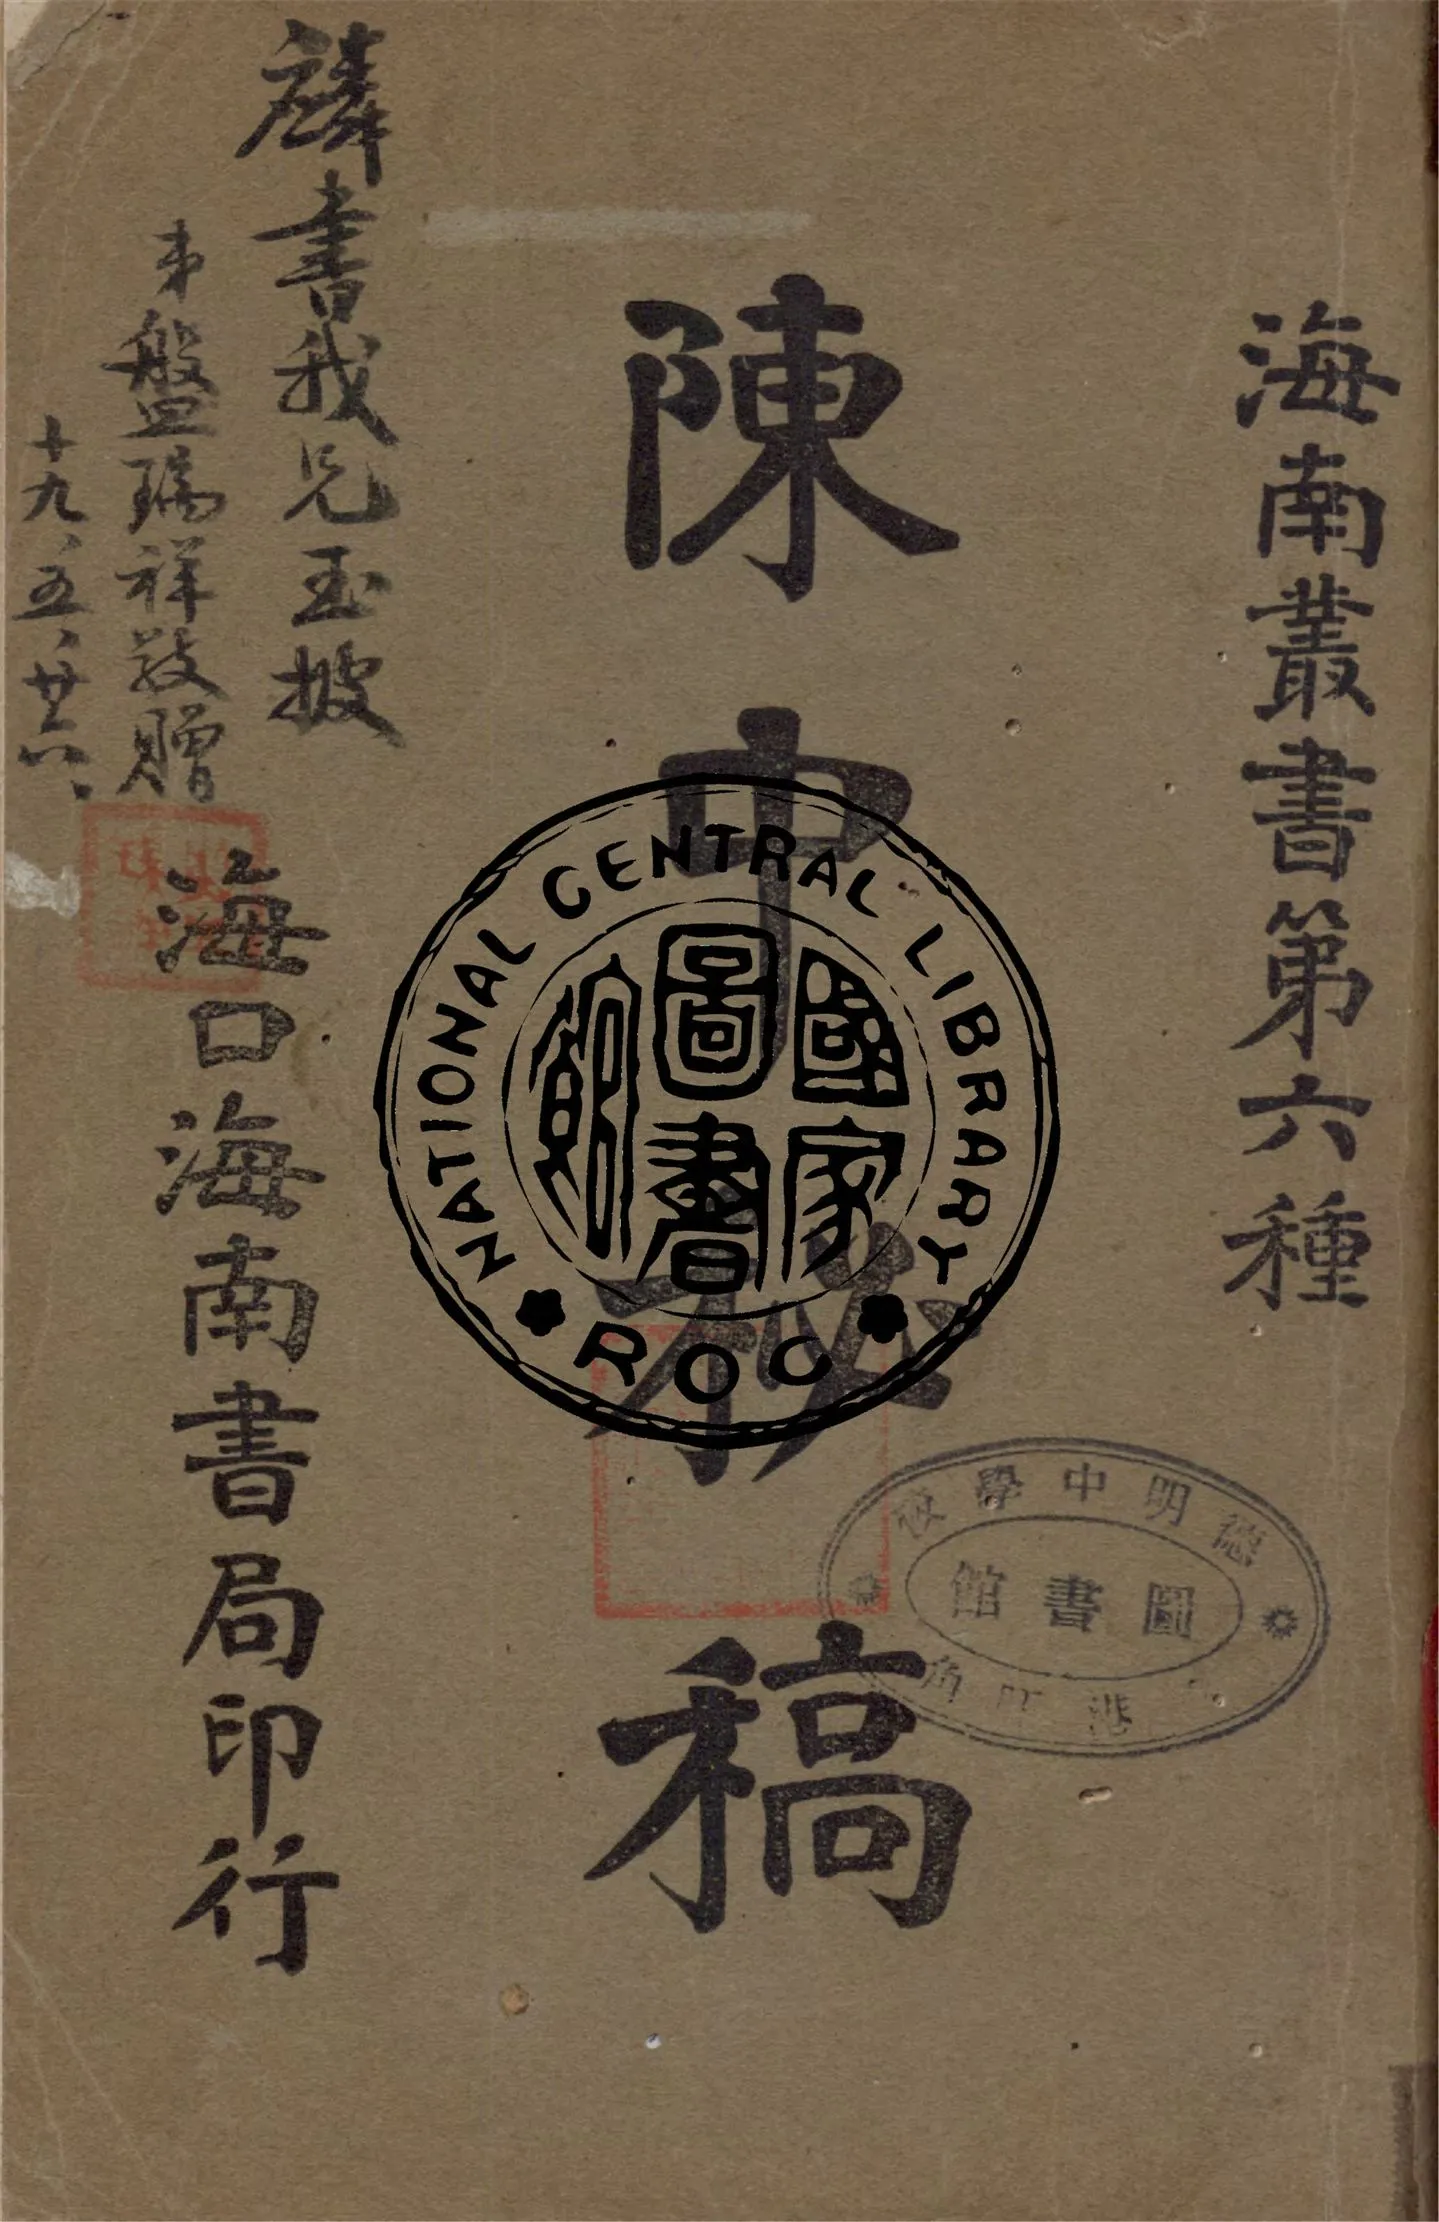 海南叢書第六種
陳中秘稿
麟書我兄玉披
弟盤瑞祥敬贈
十九、五、廿六、
海口海南書局印行
NATIONAL CENTRAL LIBRARY
國家圖書館
ROC
德明中學校
圖書館
港旺角